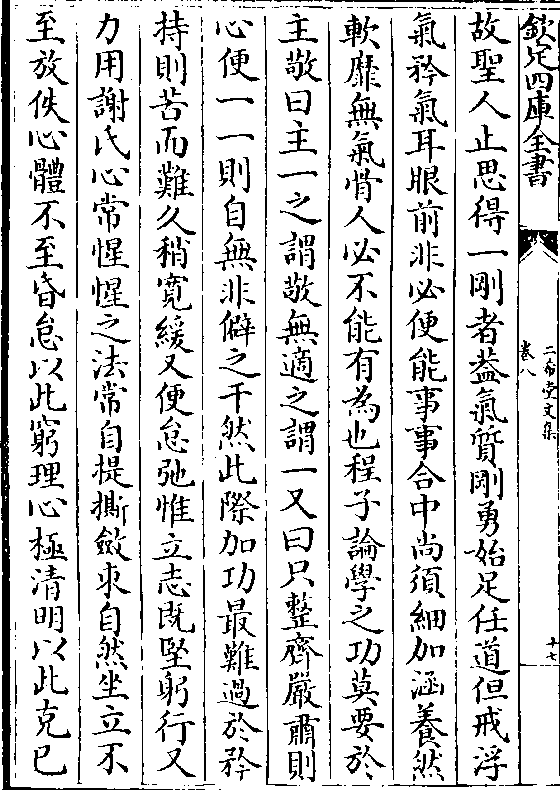 欽定四庫全書
二希堂文集
卷八
十七
故聖人止思得一剛者葢氣質剛勇始足任道但戒浮
氣矜氣耳眼前非必便能事事合中尚須細加涵養然
軟靡無氣骨人必不能有為也程子論學之功莫要於
主敬曰主一之謂敬無適之謂一又曰只整齊嚴肅則
心便一一則自無非僻之干然此際加功最難過於矜
持則苦而難久稍寛緩又便怠弛惟立志既堅躬行又
力用謝氏心常惺惺之法常自提撕斂束自然坐立不
至放佚心體不至昏怠以此窮理心極清明以此克已